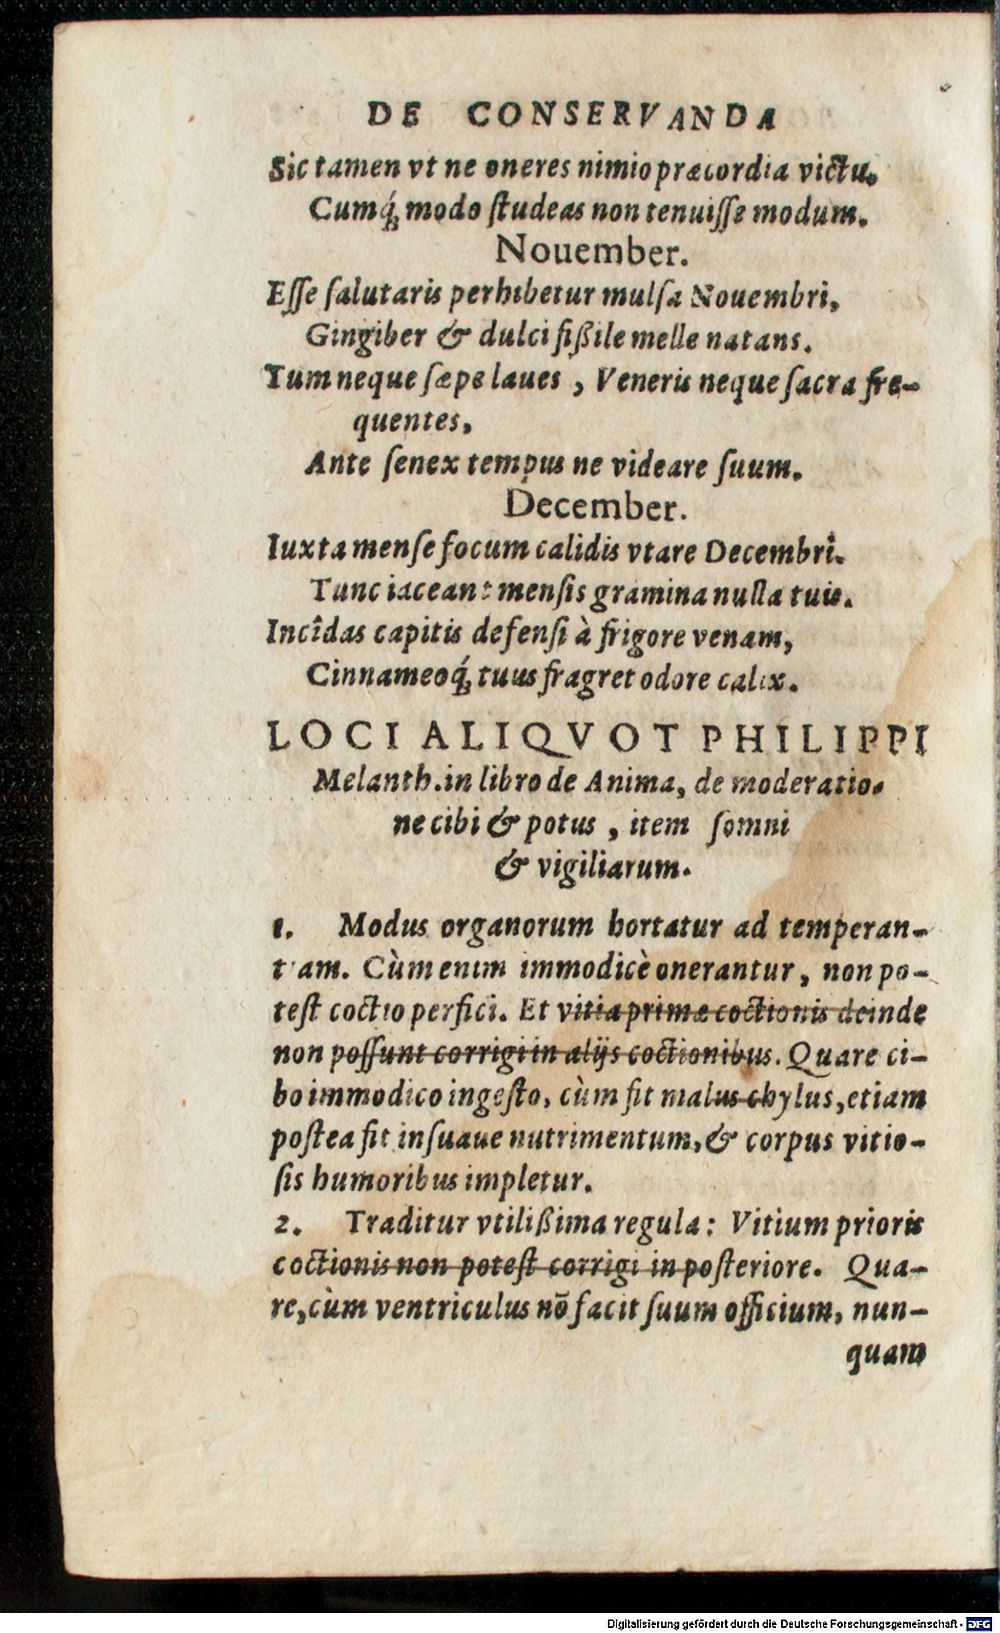 DE CONSERVANDA
Sic tamen vt ne oneres nimio præcordia victu.
Cumq́; modo studeas non tenuisse modum.
Nouember.
Esse salutaris perhibetur mulsa Nouembri,
Gingiber & dulci fißile melle natans.
Tum neque sæpe laues, Veneris neque sacra fre-
quentes,
Ante senex tempus ne videare suum.
December.
Iuxta mense focum calidis vtare Decembri.
Tunc iaceant mensis gramina nulla tuis.
Incîdas capitis defensi à frigore venam,
Cinnameoq́; tuus fragret odore calix.
LOCI ALIQVOT PHILIPPI
Melanth. in libro de Anima, de moderatio-
ne cibi & potus, item somni
& vigiliarum.
1. Modus organorum hortatur ad temperan-
tiam. Cùm enim immodicè onerantur, non po-
test coctio perfici. Et vitia primæ coctionis deinde
non possunt corrigi in alijs coctionibus. Quare ci-
bo immodico ingesto, cùm fit malus chylus, etiam
postea fit insuaue nutrimentum, & corpus vitio-
sis humoribus impletur.
2. Traditur vtilißima regula: Vitium prioris
coctionis non potest corrigi in posteriore. Qua-
re, cùm ventriculus nō facit suum officium, nun-
quam
Digitalisierung gefördert durch die Deutsche Forschungsgemeinschaft - DFG